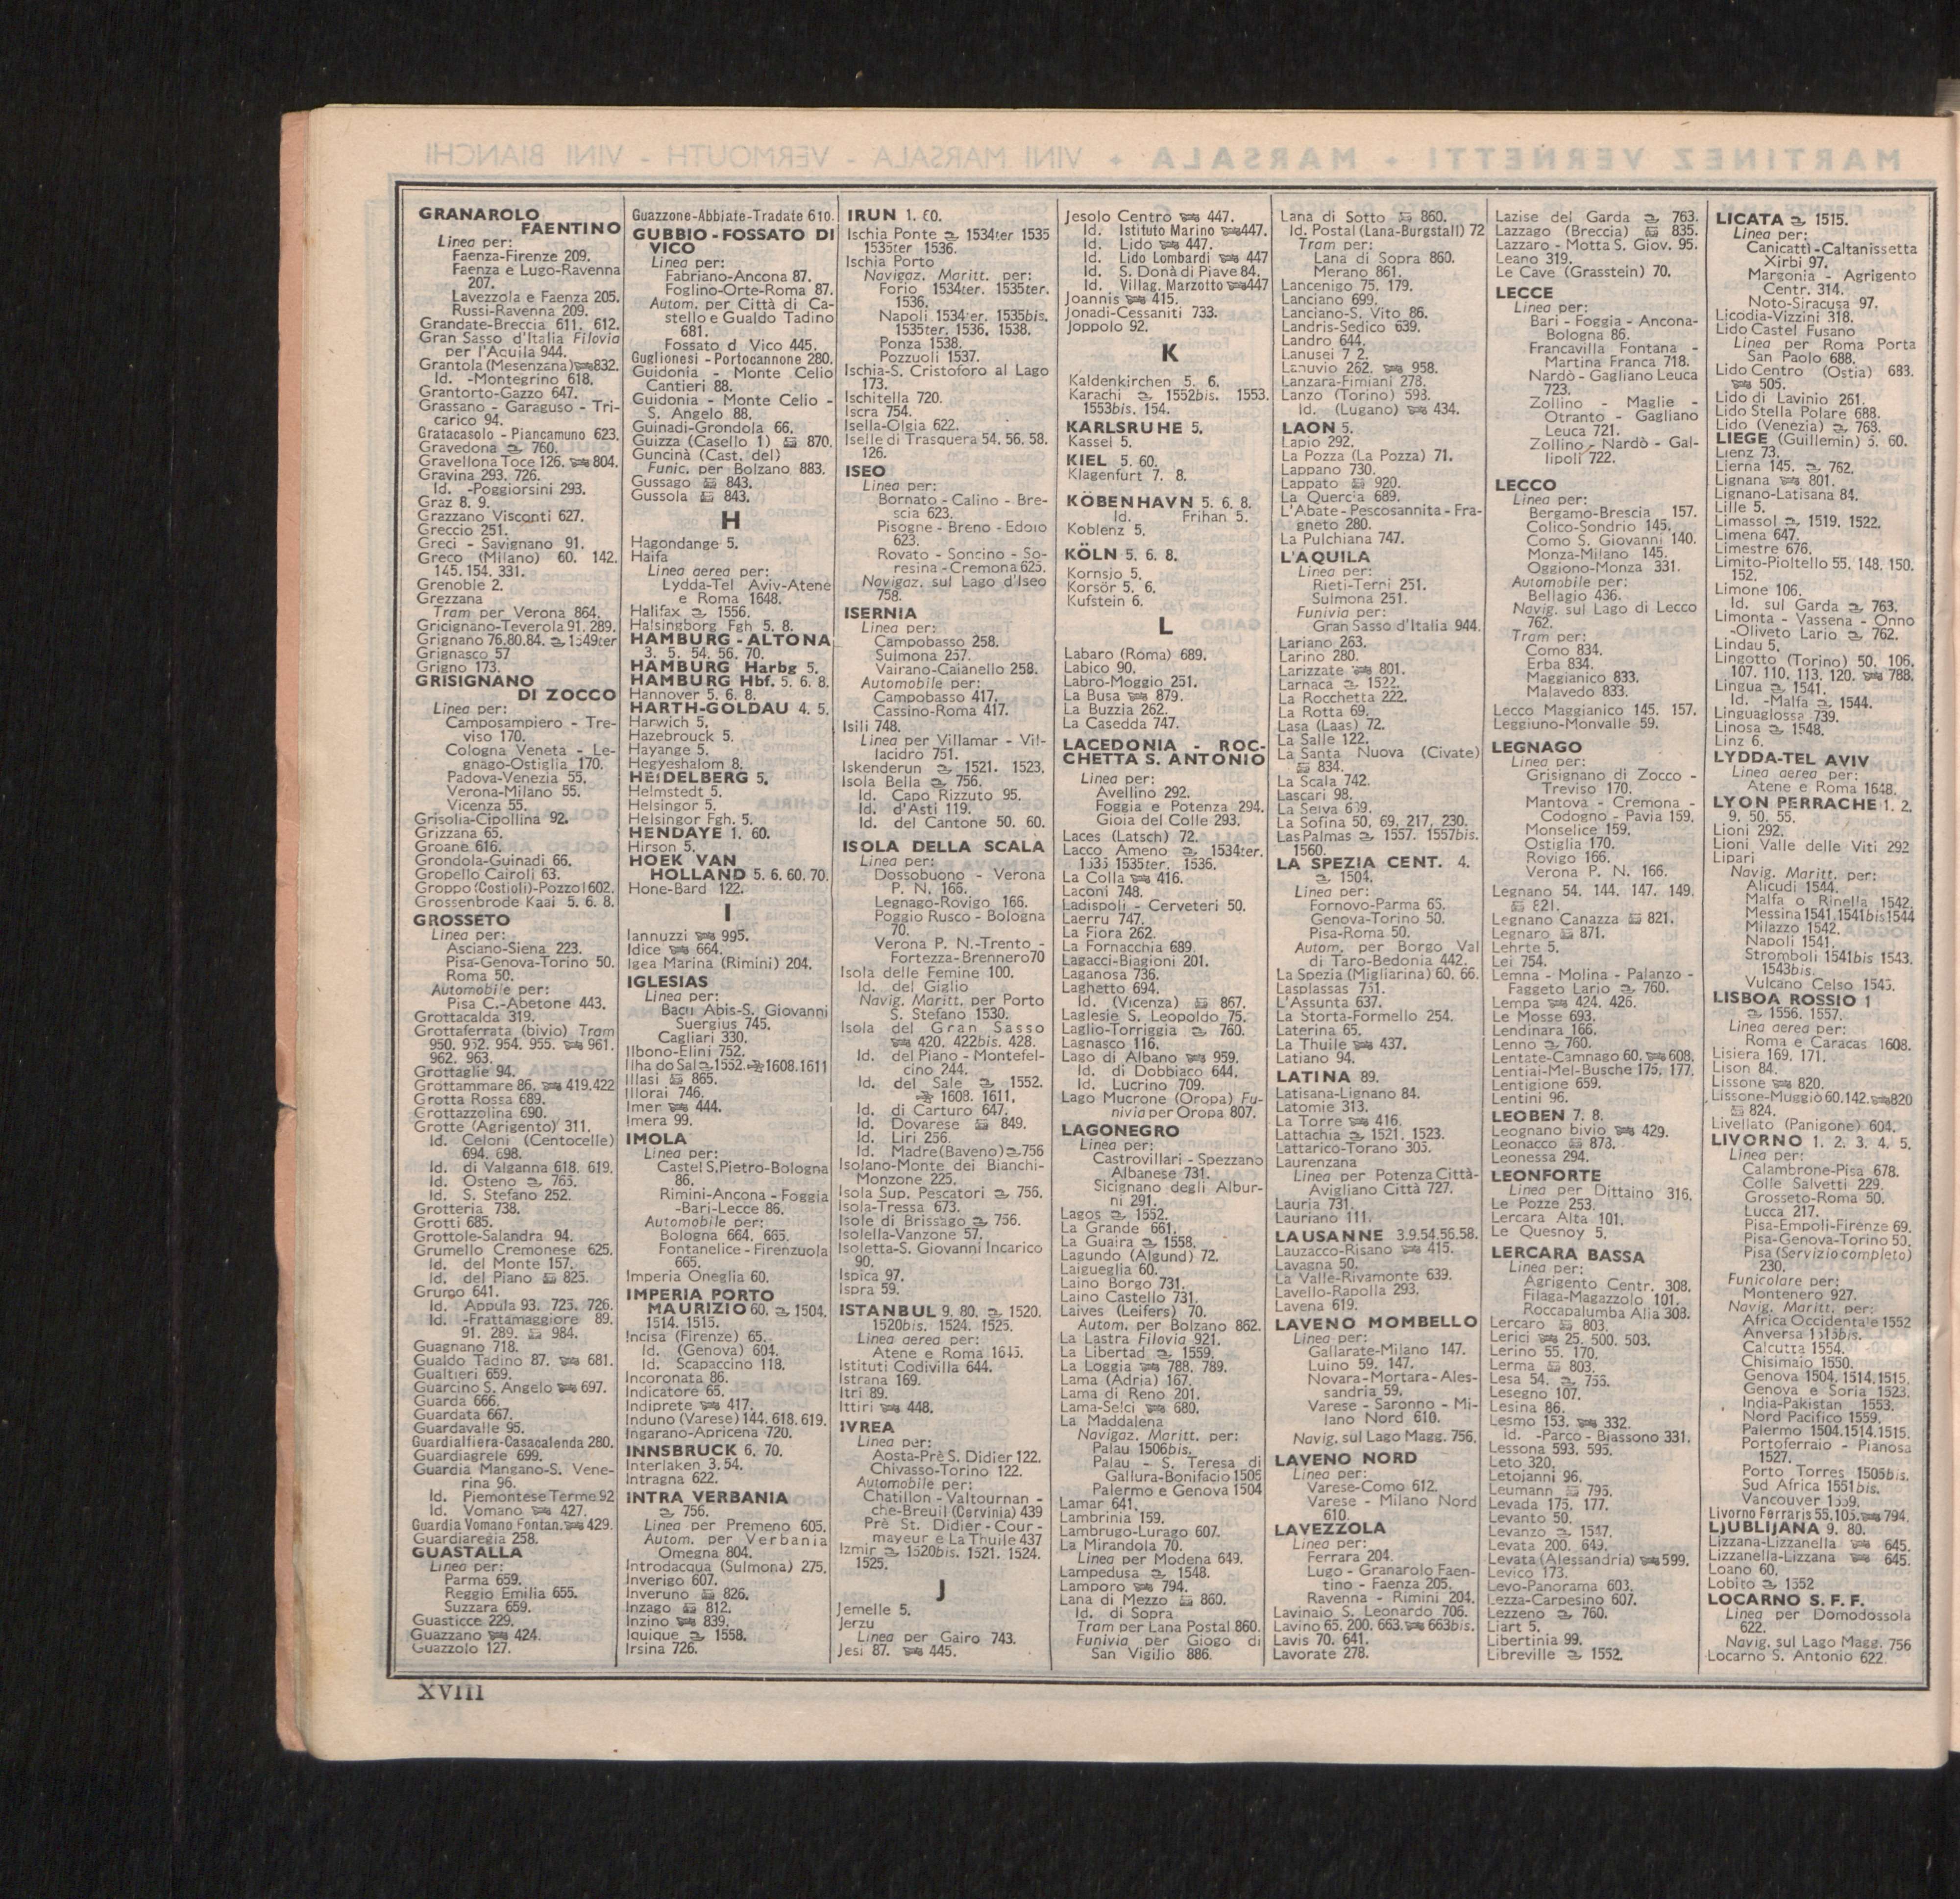 GRANAROLO
FAENTINO
Linea per:
Faenza-Firenze 209.
Faenza e Lugo-Ravenna
207.
Lavezzola e Faenza 205.
Russi-Ravenna 209.
Grandate-Breccia 611. 612.
Gran Sasso d'Italia Filovia
per l'Aquila 944.
Grantola (Mesenzana) 832.
Id. -Montegrino 618.
Grantorto-Gazzo 647.
Grassano - Garaguso - Tri-
carico 94.
Gratacasolo - Piancamuno 623.
Gravedona 760.
Gravellona Toce 126. 804.
Gravina 293. 726.
Id. -Poggiorsini 293.
Graz 8. 9.
Grazzano Visconti 627.
Greccio 251.
Greci - Savignano 91.
Greco (Milano) 60. 142.
145. 154. 331.
Grenoble 2.
Grezzana
Tram per Verona 864.
Gricignano-Teverola 91. 289.
Grignano 76.80.84. 1549ter
Grignasco 57
Grigno 173.
GRISIGNANO
DI ZOCCO
Linea per:
Camposampiero - Tre-
viso 170.
Cologna Veneta - Le-
gnago-Ostiglia 170.
Padova-Venezia 55.
Verona-Milano 55.
Vicenza 55.
Grisolia-Cipollina 92.
Grizzana 65.
Groane 616.
Grondola-Guinadi 66.
Gropello Cairoli 63.
Groppo (Costioli)-Pozzol 602.
Grossenbrode Kaai 5. 6. 8.
GROSSETO
Linea per:
Asciano-Siena 223.
Pisa-Genova-Torino 50.
Roma 50.
Automobile per:
Pisa C.-Abetone 443.
Grottacalda 319.
Grottaferrata (bivio) Tram
950. 952. 954. 955. 961.
962. 963.
Grottaglie 94.
Grottammare 86. 419.422
Grotta Rossa 689.
Grottazzolina 690.
Grotte (Agrigento) 311.
Id. Celoni (Centocelle)
694. 698.
Id. di Valganna 618. 619.
Id. Osteno 765.
Id. S. Stefano 252.
Grotteria 738.
Grotti 685.
Grottole-Salandra 94.
Grumello Cremonese 625.
Id. del Monte 157.
Id. del Piano 825.
Grumo 641.
Id. Appula 93. 725. 726.
Id. -Frattamaggiore 89.
91. 289. 984.
Guagnano 718.
Gualdo Tadino 87. 681.
Gualtieri 659.
Guarcino S. Angelo 697.
Guarda 666.
Guardata 667.
Guardavalle 95.
Guardialfiera-Casacalenda 280.
Guardiagrele 699.
Guardia Mangano-S. Vene-
rina 96.
Id. Piemontese Terme 92
Id. Vomano 427.
Guardia Vomano Fontan. 429.
Guardiaregia 258.
GUASTALLA
Linea per:
Parma 659.
Reggio Emilia 655.
Suzzara 659.
Guasticce 229.
Guazzano 424.
Guazzolo 127.
Guazzone-Abbiate-Tradate 610.
GUBBIO - FOSSATO DI
VICO
Linea per:
Fabriano-Ancona 87.
Foglino-Orte-Roma 87.
Autom. per Città di Ca-
stello e Gualdo Tadino
681.
Fossato d Vico 445.
Guglionesi - Portocannone 280.
Guidonia - Monte Celio
Cantieri 88.
Guidonia - Monte Celio -
S. Angelo 88.
Guinadi-Grondola 66.
Guizza (Casello 1) 870.
Guncinà (Cast. del)
Funic. per Bolzano 883.
Gussago 843.
Gussola 843.
H
Hagondange 5.
Haifa
Linea aerea per:
Lydda-Tel Aviv-Atene
e Roma 1648.
Halifax 1556.
Halsingborg Fgh 5. 8.
HAMBURG - ALTONA
3. 5. 54. 56. 70.
HAMBURG Harbg 5.
HAMBURG Hbf. 5. 6. 8.
Hannover 5. 6. 8.
HARTH-GOLDAU 4. 5.
Harwich 5.
Hazebrouck 5.
Hayange 5.
Hegyeshalom 8.
HEIDELBERG 5.
Helmstedt 5.
Helsingor 5.
Helsingor Fgh. 5.
HENDAYE 1. 60.
Hirson 5.
HOEK VAN
HOLLAND 5. 6. 60. 70.
Hone-Bard 122.
I
Iannuzzi 995.
Idice 664.
Igea Marina (Rimini) 204.
IGLESIAS
Linea per:
Bacu Abis-S. Giovanni
Suergius 745.
Cagliari 330.
Ilbono-Elini 752.
Ilha do Sal 1552. 1608.1611
Illasi 865.
Illorai 746.
Imer 444.
Imera 99.
IMOLA
Linea per:
Castel S.Pietro-Bologna
86.
Rimini-Ancona - Foggia
-Bari-Lecce 86.
Automobile per:
Bologna 664. 665.
Fontanelice - Firenzuola
665.
Imperia Oneglia 60.
IMPERIA PORTO
MAURIZIO 60. 1504.
1514. 1515.
Incisa (Firenze) 65.
Id. (Genova) 604.
Id. Scapaccino 118.
Incoronata 86.
Indicatore 65.
Indiprete 417.
Induno (Varese) 144. 618. 619.
Ingarano-Apricena 720.
INNSBRUCK 6. 70.
Interlaken 3.54.
Intragna 622.
INTRA VERBANIA
756.
Linea per Premeno 605.
Autom. per Verbania
Omegna 804.
Introdacqua (Sulmona) 275.
Inverigo 607.
Inveruno 826.
Inzago 812.
Inzino 839.
Iquique 1558.
Irsina 726.
IRUN 1. 60.
Ischia Ponte 1534ter 1535
1535ter 1536.
Ischia Porto
Navigaz. Maritt. per:
Forio 1534ter. 1535ter.
1536.
Napoli 1534ter. 1535bis.
1535ter. 1536. 1538.
Ponza 1538.
Pozzuoli 1537.
Ischia-S. Cristoforo al Lago
173.
Ischitella 720.
Iscra 754.
Isella-Olgia 622.
Iselle di Trasquera 54. 56. 58.
126.
ISEO
Linea per:
Bornato - Calino - Bre-
scia 623.
Pisogne - Breno - Edolo
623.
Rovato - Soncino - So-
resina - Cremona 625.
Navigaz. sul Lago d'Iseo
758.
ISERNIA
Linea per:
Campobasso 258.
Sulmona 257.
Vairano-Caianello 258.
Automobile per:
Campobasso 417.
Cassino-Roma 417.
Isili 748.
Linea per Villamar - Vil-
lacidro 751.
Iskenderun 1521. 1523.
Isola Bella 756.
Id. Capo Rizzuto 95.
Id. d'Asti 119.
Id. del Cantone 50. 60.
ISOLA DELLA SCALA
Linea per:
Dossobuono - Verona
P. N. 166.
Legnago-Rovigo 166.
Poggio Rusco - Bologna
70.
Verona P. N.-Trento -
Fortezza-Brennero 70
Isola delle Femine 100.
Id. del Giglio
Navig. Maritt. per Porto
S. Stefano 1530.
Isola del Gran Sasso
420. 422bis. 428.
Id. del Piano - Montefel-
cino 244.
Id. del Sale 1552.
1608. 1611.
Id. di Carturo 647.
Id. Dovarese 849.
Id. Liri 256.
Id. Madre (Baveno) 756
Isolano-Monte dei Bianchi-
Monzone 225.
Isola Sup. Pescatori 756.
Isola-Tressa 673.
Isole di Brissago 756.
Isolella-Vanzone 57.
Isoletta-S. Giovanni Incarico
90.
Ispica 97.
Ispra 59.
ISTANBUL 9. 80. 1520.
1520bis. 1524. 1525.
Linea aerea per:
Atene e Roma 1645.
Istituti Codivilla 644.
Istrana 169.
Itri 89.
Ittiri 448.
IVREA
Linea per:
Aosta-Prè S. Didier 122.
Chivasso-Torino 122.
Automobile per:
Chatillon - Valtournan -
che-Breuil (Cervinia) 439
Prè St. Didier - Cour -
mayeur e La Thuile 437
Izmir 1520bis. 1521. 1524.
1525.
J
Jemelle 5.
Jerzu
Linea per Gairo 743.
Jesi 87. 445.
Jesolo Centro 447.
Id. Istituto Marino 447.
Id. Lido 447.
Id. Lido Lombardi 447
Id. S. Donà di Piave 84.
Id. Villag. Marzotto 447
Joannis 415.
Jonadi-Cessaniti 733.
Joppolo 92.
K
Kaldenkirchen 5. 6.
Karachi 1552bis. 1553.
1553bis. 154.
KARLSRUHE 5.
Kassel 5.
KIEL 5. 60.
Klagenfurt 7. 8.
KÖBENHAVN 5. 6. 8.
Id. Frihan 5.
Koblenz 5.
KÖLN 5. 6. 8.
Kornsjo 5.
Korsör 5. 6.
Kufstein 6.
L
Labaro (Roma) 689.
Labico 90.
Labro-Moggio 251.
La Busa 879.
La Buzzia 262.
La Casedda 747.
LACEDONIA - ROC-
CHETTA S. ANTONIO
Linea per:
Avellino 292.
Foggia e Potenza 294.
Gioia del Colle 293.
Laces (Latsch) 72.
Lacco Ameno 1534ter.
1535 1535ter. 1536.
La Colla 416.
Laconi 748.
Ladispoli - Cerveteri 50.
Laerru 747.
La Fiora 262.
La Fornacchia 689.
Lagacci-Biagioni 201.
Laganosa 736.
Laghetto 694.
Id. (Vicenza) 867.
Laglesie S. Leopoldo 75.
Laglio-Torriggia 760.
Lagnasco 116.
Lago di Albano 959.
Id. di Dobbiaco 644.
Id. Lucrino 709.
Lago Mucrone (Oropa) Fu-
nivia per Oropa 807.
LAGONEGRO
Linea per:
Castrovillari - Spezzano
Albanese 731.
Sicignano degli Albur-
ni 291.
Lagos 1552.
La Grande 661.
La Guaira 1558.
Lagundo (Algund) 72.
Laigueglia 60.
Laino Borgo 731.
Laino Castello 731.
Laives (Leifers) 70.
Autom. per Bolzano 862.
La Lastra Filovia 921.
La Libertad 1559.
La Loggia 788. 789.
Lama (Adria) 167.
Lama di Reno 201.
Lama-Selci 680.
La Maddalena
Navigaz. Maritt. per:
Palau 1506bis.
Palau - S. Teresa di
Gallura-Bonifacio 1506
Palermo e Genova 1504
Lamar 641.
Lambrinia 159.
Lambrugo-Lurago 607.
La Mirandola 70.
Linea per Modena 649.
Lampedusa 1548.
Lamporo 794.
Lana di Mezzo 860.
Id. di Sopra
Tram per Lana Postal 860.
Funivia per Giogo di
San Vigilio 886.
Lana di Sotto 860.
Id. Postal (Lana-Burgstall) 72
Tram per:
Lana di Sopra 860.
Merano 861.
Lancenigo 75. 179.
Lanciano 699.
Lanciano-S. Vito 86.
Landris-Sedico 639.
Landro 644.
Lanusei 7 2.
Lanuvio 262. 958.
Lanzara-Fimiani 278.
Lanzo (Torino) 593.
Id. (Lugano) 434.
LAON 5.
Lapio 292.
La Pozza (La Pozza) 71.
Lappano 730.
Lappato 920.
La Quercia 689.
L'Abate - Pescosannita - Fra-
gneto 280.
La Pulchiana 747.
L'AQUILA
Linea per:
Rieti-Terni 251.
Sulmona 251.
Funivia per:
Gran Sasso d'Italia 944.
Lariano 263.
Larino 280.
Larizzate 801.
Larnaca 1522.
La Rocchetta 222.
La Rotta 69.
Lasa (Laas) 72.
La Salle 122.
La Santa Nuova (Civate)
834.
La Scala 742.
Lascari 98.
La Selva 639.
La Sofina 50. 69. 217. 230.
Las Palmas 1557. 1557bis.
1560.
LA SPEZIA CENT. 4.
1504.
Linea per:
Fornovo-Parma 65.
Genova-Torino 50.
Pisa-Roma 50.
Autom. per Borgo Val
di Taro-Bedonia 442.
La Spezia (Migliarina) 60. 66.
Lasplassas 751.
L'Assunta 637.
La Storta-Formello 254.
Laterina 65.
La Thuile 437.
Latiano 94.
LATINA 89.
Latisana-Lignano 84.
Latomie 313.
La Torre 416.
Lattachia 1521. 1523.
Lattarico-Torano 305.
Laurenzana
Linea per Potenza Città-
Avigliano Città 727.
Lauria 731.
Lauriano 111.
LAUSANNE 3.9.54.56.58.
Lauzacco-Risano 415.
Lavagna 50.
La Valle-Rivamonte 639.
Lavello-Rapolla 293.
Lavena 619.
LAVENO MOMBELLO
Linea per:
Gallarate-Milano 147.
Luino 59. 147.
Novara-Mortara-Ales-
sandria 59.
Varese - Saronno - Mi-
lano Nord 610.
Navig. sul Lago Magg. 756.
LAVENO NORD
Linea per:
Varese-Como 612.
Varese - Milano Nord
610.
LAVEZZOLA
Linea per:
Ferrara 204.
Lugo - Granarolo Faen-
tino - Faenza 205.
Ravenna - Rimini 204.
Lavinaio S. Leonardo 706.
Lavino 65. 200. 663. 663bis.
Lavis 70. 641.
Lavorate 278.
Lazise del Garda 763.
Lazzago (Breccia) 835.
Lazzaro - Motta S. Giov. 95.
Leano 319.
Le Cave (Grasstein) 70.
LECCE
Linea per:
Bari - Foggia - Ancona-
Bologna 86.
Francavilla Fontana -
Martina Franca 718.
Nardò - Gagliano Leuca
723.
Zollino - Maglie -
Otranto - Gagliano
Leuca 721.
Zollino - Nardò - Gal-
lipoli 722.
LECCO
Linea per:
Bergamo-Brescia 157.
Colico-Sondrio 145.
Como S. Giovanni 140.
Monza-Milano 145.
Oggiono-Monza 331.
Automobile per:
Bellagio 436.
Navig. sul Lago di Lecco
762.
Tram per:
Como 834.
Erba 834.
Maggianico 833.
Malavedo 833.
Lecco Maggianico 145. 157.
Leggiuno-Monvalle 59.
LEGNAGO
Linea per:
Grisignano di Zocco -
Treviso 170.
Mantova - Cremona -
Codogno - Pavia 159.
Monselice 159.
Ostiglia 170.
Rovigo 166.
Verona P. N. 166.
Legnano 54. 144. 147. 149.
821.
Legnano Canazza 821.
Legnaro 871.
Lehrte 5.
Lei 754.
Lemna - Molina - Palanzo -
Faggeto Lario 760.
Lempa 424. 426.
Le Mosse 693.
Lendinara 166.
Lenno 760.
Lentate-Camnago 60. 608.
Lentiai-Mel-Busche 175. 177.
Lentigione 659.
Lentini 96.
LEOBEN 7. 8.
Leognano bivio 429.
Leonacco 873.
Leonessa 294.
LEONFORTE
Linea per Dittaino 316.
Le Pozze 253.
Lercara Alta 101.
Le Quesnoy 5.
LERCARA BASSA
Linea per:
Agrigento Centr. 308.
Filaga-Magazzolo 101.
Roccapalumba Alia 308.
Lercaro 803.
Lerici 25. 500. 503.
Lerino 55. 170.
Lerma 803.
Lesa 54. 756.
Lesegno 107.
Lesina 86.
Lesmo 153. 332.
Id. -Parco - Biassono 331.
Lessona 593. 595.
Leto 320.
Letojanni 96.
Leumann 795.
Levada 175. 177.
Levanto 50.
Levanzo 1547.
Levata 200. 649.
Levata (Alessandria) 599.
Levico 173.
Levo-Panorama 603.
Lezza-Carpesino 607.
Lezzeno 760.
Liart 5.
Libertinia 99.
Libreville 1552.
LICATA 1515.
Linea per:
Canicattì-Caltanissetta
Xirbi 97.
Margonia - Agrigento
Centr. 314.
Noto-Siracusa 97.
Licodia-Vizzini 318.
Lido Castel Fusano
Linea per Roma Porta
San Paolo 688.
Lido Centro (Ostia) 683.
505.
Lido di Lavinio 261.
Lido Stella Polare 688.
Lido (Venezia) 768.
LIEGE (Guillemin) 5. 60.
Lienz 73.
Lierna 145. 762.
Lignana 801.
Lignano-Latisana 84.
Lille 5.
Limassol 1519. 1522.
Limena 647.
Limestre 676.
Limito-Pioltello 55. 148. 150.
152.
Limone 106.
Id. sul Garda 763.
Limonta - Vassena - Onno
-Oliveto Lario 762.
Lindau 5.
Lingotto (Torino) 50. 106.
107. 110. 113. 120. 788.
Lingua 1541.
Id. -Malfa 1544.
Linguaglossa 739.
Linosa 1548.
Linz 6.
LYDDA-TEL AVIV
Linea aerea per:
Atene e Roma 1648.
LYON PERRACHE 1. 2.
9. 50. 55.
Lioni 292.
Lioni Valle delle Viti 292
Lipari
Navig. Maritt. per:
Alicudi 1544.
Malfa o Rinella 1542.
Messina 1541.1541bis 1544
Milazzo 1542.
Napoli 1541.
Stromboli 1541bis 1543.
1543bis.
Vulcano Celso 1543.
LISBOA ROSSIO 1
1556. 1557.
Linea aerea per:
Roma e Caracas 1608.
Lisiera 169. 171.
Lison 84.
Lissone 820.
Lissone-Muggiò 60.142. 820
824.
Livellato (Panigone) 604.
LIVORNO 1. 2. 3. 4. 5.
Linea per:
Calambrone-Pisa 678.
Colle Salvetti 229.
Grosseto-Roma 50.
Lucca 217.
Pisa-Empoli-Firenze 69.
Pisa-Genova-Torino 50.
Pisa (Servizio completo)
230.
Funicolare per:
Montenero 927.
Navig. Maritt. per:
Africa Occidentale 1552
Anversa 1513bis.
Calcutta 1554.
Chisimaio 1550.
Genova 1504.1514.1515.
Genova e Soria 1523.
India-Pakistan 1553.
Nord Pacifico 1559.
Palermo 1504.1514.1515.
Portoferraio - Pianosa
1527.
Porto Torres 1505bis.
Sud Africa 1551bis.
Vancouver 1559.
Livorno Ferraris 55.105. 794.
LJUBLJANA 9. 80.
Lizzana-Lizzanella 645.
Lizzanella-Lizzana 645.
Loano 60.
Lobito 1552
LOCARNO S. F. F.
Linea per Domodossola
622.
Navig. sul Lago Magg. 756
Locarno S. Antonio 622.
XVIII